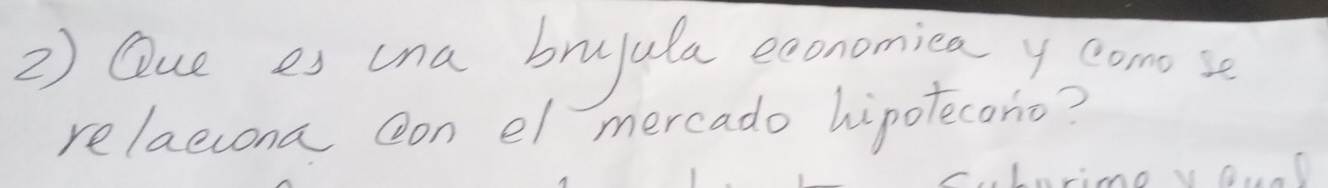 2) Que es una brujula economica y como se
relaciona con el mercado hipotecario?
subprime y cual